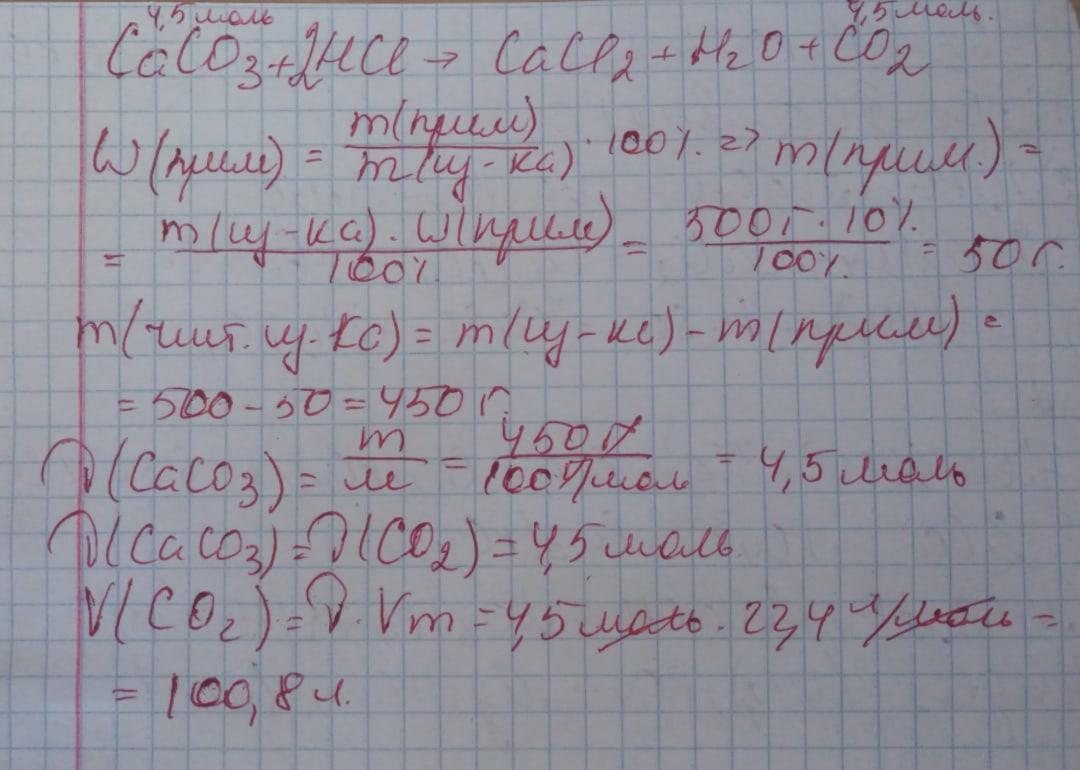 4,5 моль 4,5 моль.
CaCO₃ + 2HCl → CaCl₂ + H₂O + CO₂
W(прим) = m(прим) / m(ц-ка) · 100% => m(прим.) =
= m(ц-ка) · W(прим) / 100% = 500г · 10% / 100% = 50г.
m(чист. ц-ка) = m(ц-ка) - m(прим) =
= 500 - 50 = 450 г.
ν(CaCO₃) = m / м = 450 г / 100 г/моль = 4,5 моль
ν(CaCO₃) = ν(CO₂) = 4,5 моль.
V(CO₂) = ν · Vm = 4,5 моль · 22,4 л/моль =
= 100,8 л.